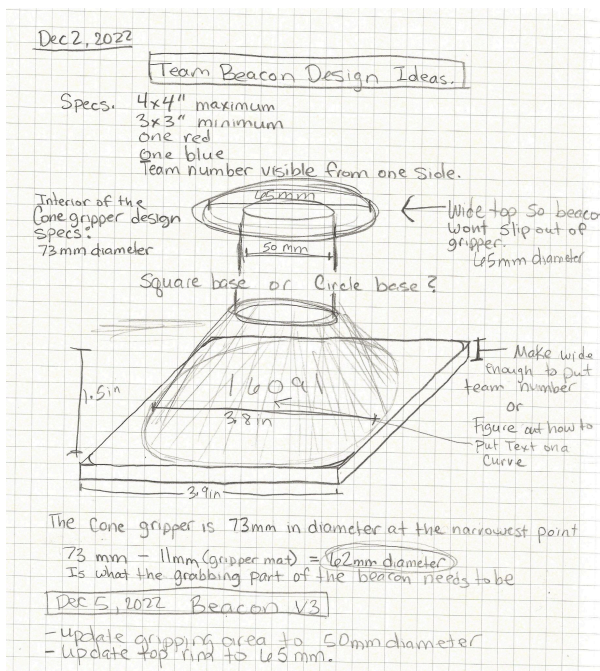 Dec 2, 2022
Team Beacon Design Ideas.
Specs. 4x4" maximum
3x3" minimum
one red
one blue
Team number visible from one side.
Interior of the
Cone gripper design
specs:
73 mm diameter
65mm
50 mm
Wide top so beacon
wont slip out of
gripper.
65mm diameter
Square base or Circle base?
1.5in
16091
3.8in
3.9in
Make wide
enough to put
team number
or
Figure out how to
Put Text on a
Curve
The Cone gripper is 73mm in diameter at the narrowest point
73 mm - 11mm (gripper mat) = 62mm diameter
Is what the grabbing part of the beacon needs to be
Dec 5, 2022 Beacon V3
- update gripping area to 50mm diameter
- update top rind to 65 mm.